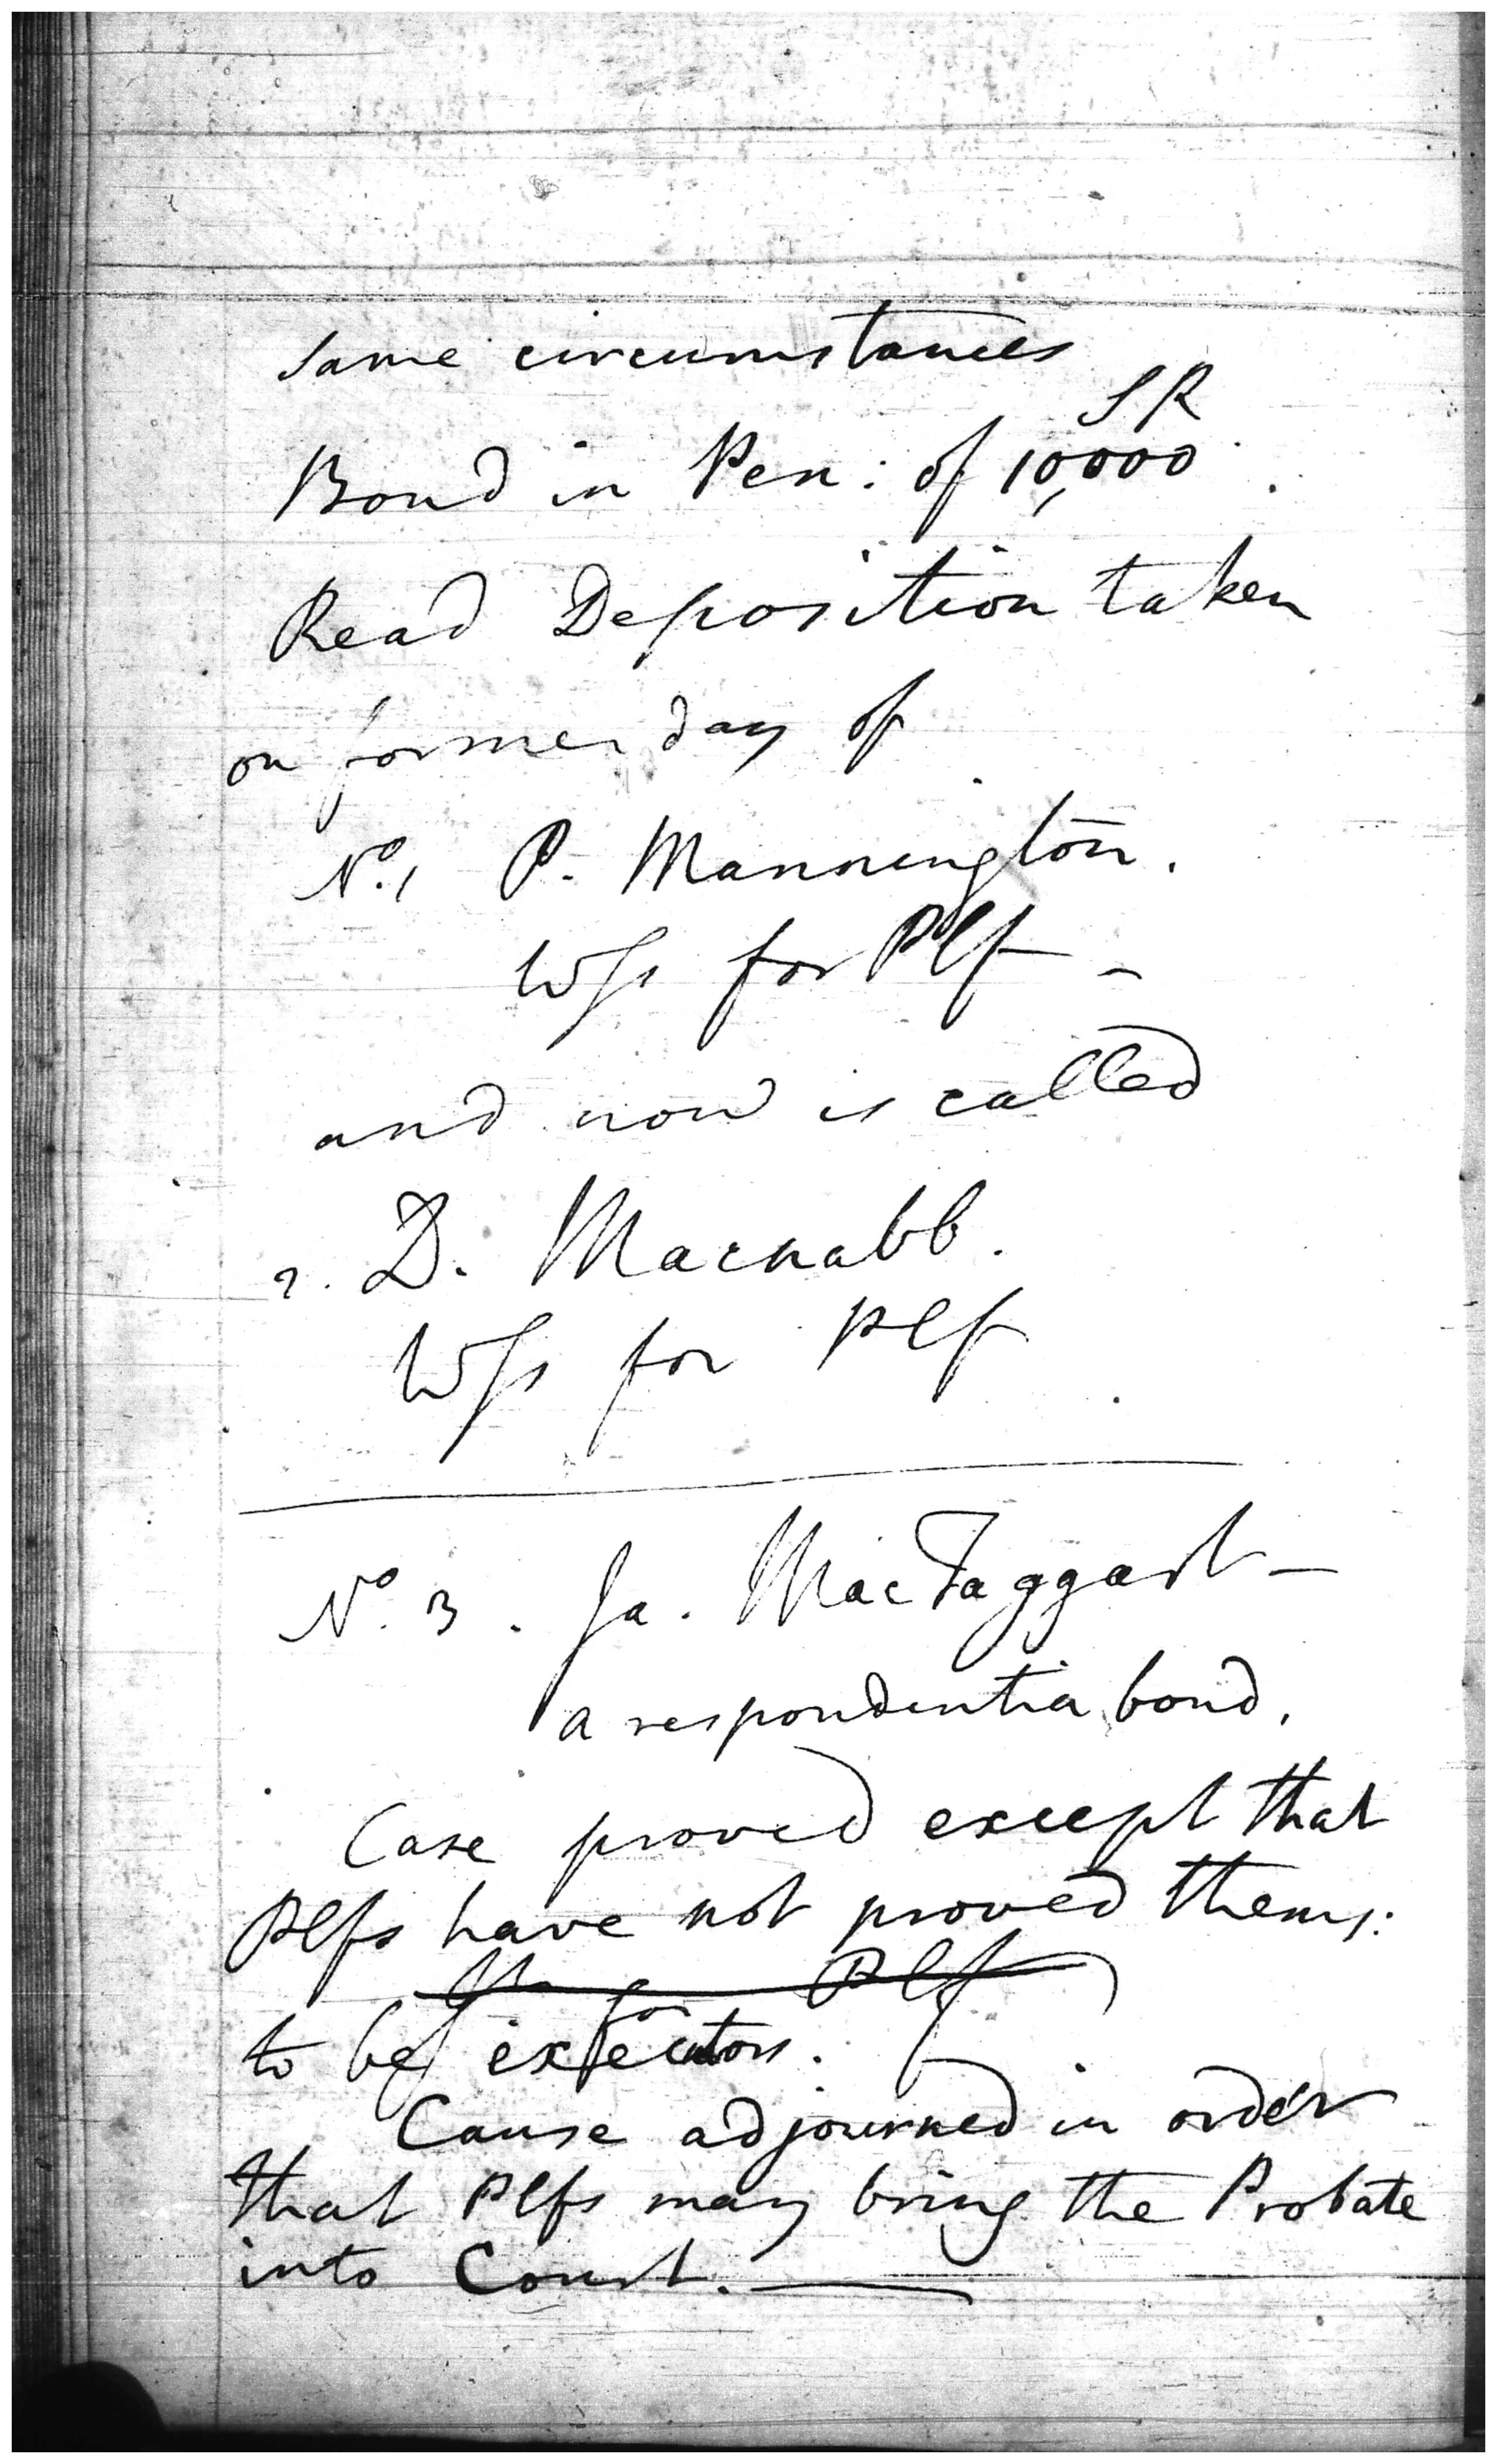 same circumstances
SR
Bond in Pen: of 10,000.
Read Deposition taken
on former day of
No. 1 P. Mannington.
Wss for Plf -
and now is called
2. D. Macnabb.
Wss for Plf
No. 3. Ja. MacTaggart -
a respondentia bond.
Case proved except that
Plfs have not proved thems:
for Plf
to be executors.
Cause adjourned in order
that Plfs may bring the Probate
into Court. —